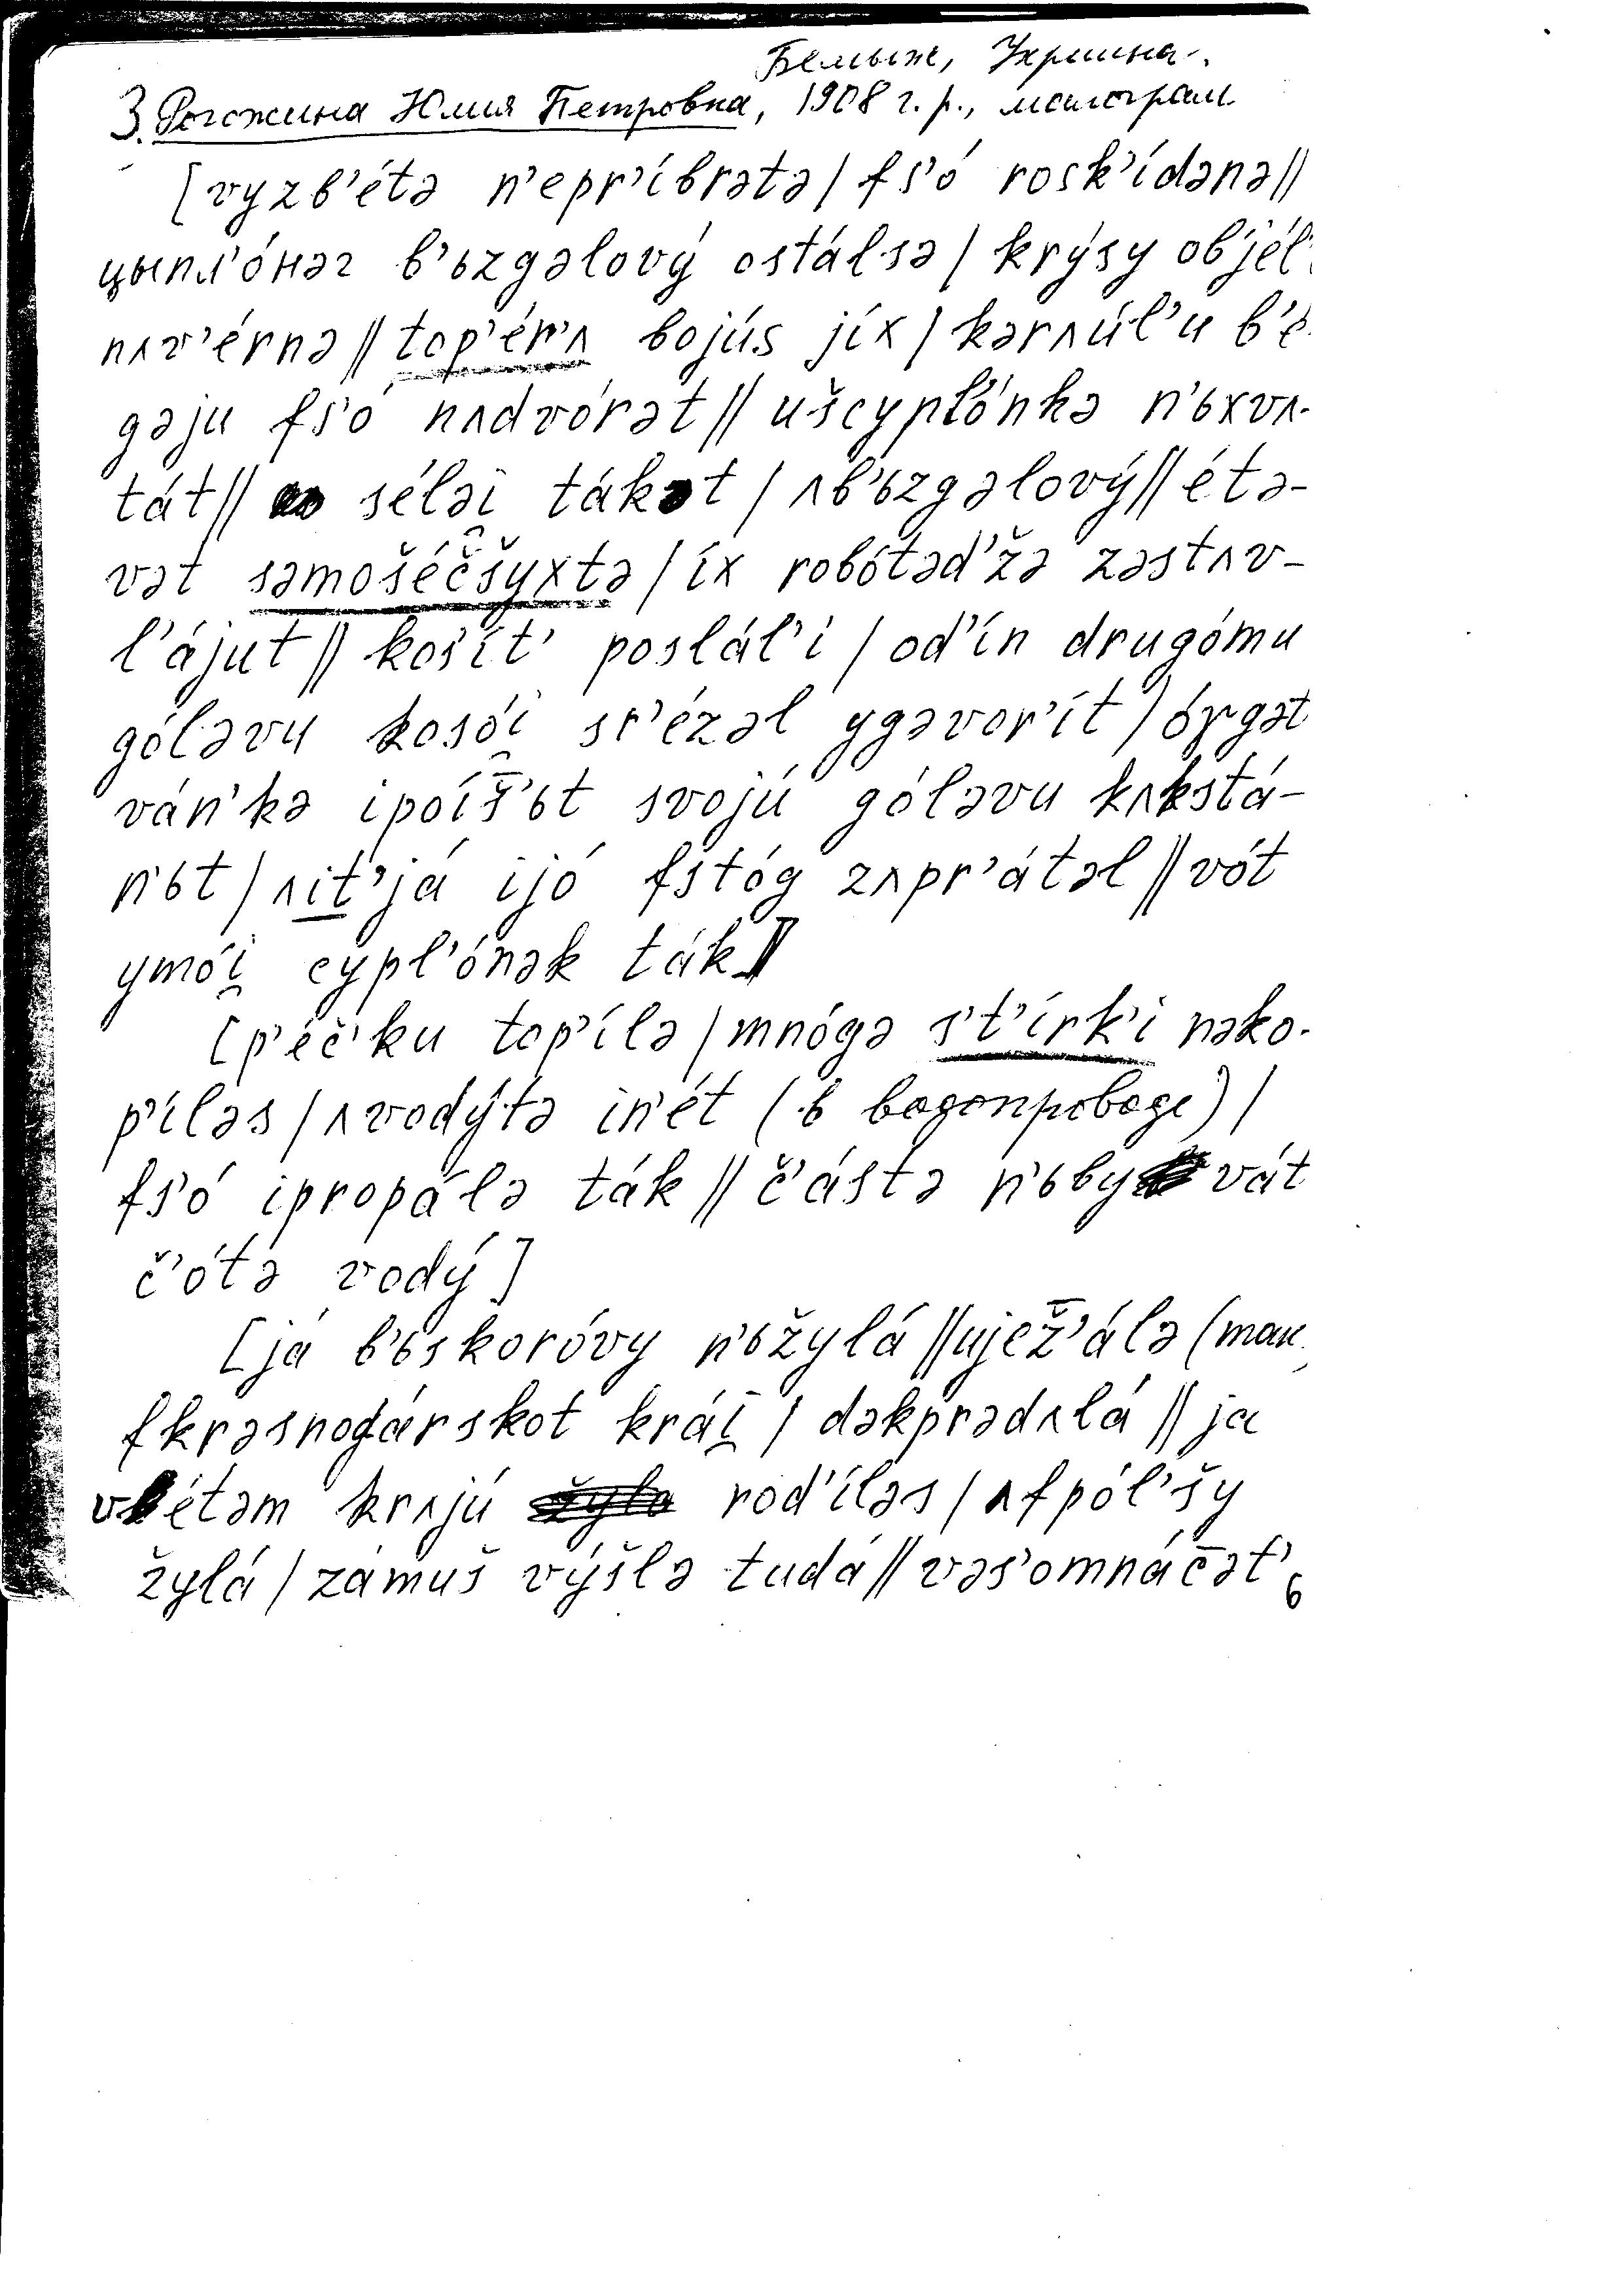 Бемыж, Украина.
3. Рогожина Юлия Петровна, 1908 г. р., малограм.
[vyzb’étə n’epr’íbrətə / fs’ó rosk’ídənə //
цыпл’о́нəг b’ьzgəlový ostálsə / krýsy objél’
nʌv’érnə // top’ér’ʌ bojús jíx / kərʌúl’u b’é
gəju fs’ó nʌdvórət // ušcypl’ónkə n’ьxvʌ-
tát // sélэi̯ tákət / ʌb’ьzgəlový // étə-
vət səmošéčšyxtə / íx robótəd’žə zəstʌv-
l’ájut // kos’ít’ poslál’i / od’ín drugómu
góləvu kosói̯ sr’ézəl ygəvor’ít / órgət
ván’kə ipoíš̅’ьt svojú góləvu kʌkstá-
n’ьt / ʌit’já ijó fstóg zʌpr’átəl // vót
ymói̯ cypl’ónək ták //]
[p’éč’ku top’ílə / mnógə s’t’írk’i nəko-
p’íləs / ʌvodýtə in’ét (в водопроводе) /
fs’ó ipropálə ták // č’ástə n’ьbyvát
č’ótə vodý]
[já b’ьskoróvy n’ьžylá // ujež̅’álə (так
fkrəsnodárskot krái̯ / dəkprədʌlá // ja
vétəm krʌjú rod’íləs / ʌfpól’šy
žylá / zámuš výšlə tudá // vəs’omnáčət’
6